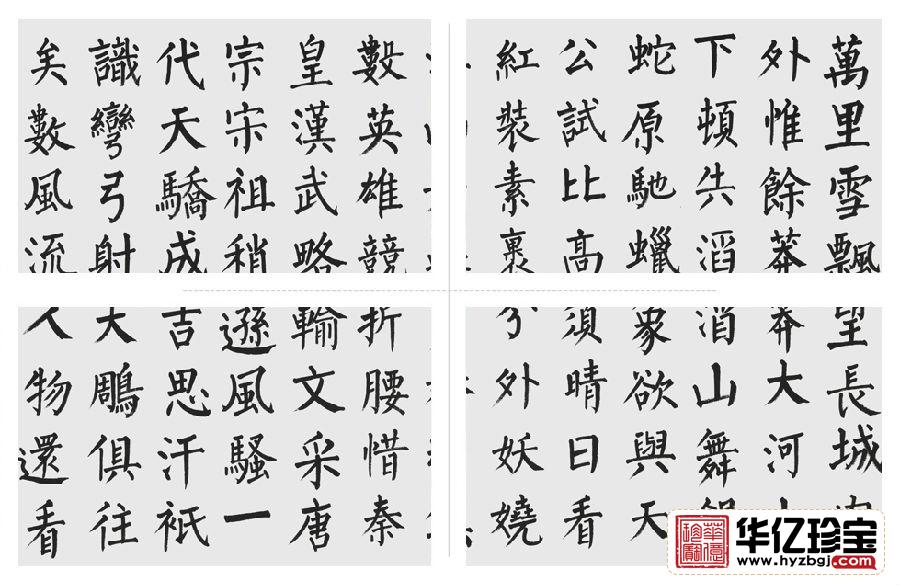 萬里雪飄
外惟餘莽
下頓失滔
蛇原馳蠟
公試比高
紅裝素裹
數英雄競
皇漢武略
宗宋祖稍
代天驕成
識彎弓射
矣數風流
望長城
莽大河
滔山舞
象欲與天
須晴日看
分外妖嬈
折腰惜秦
輸文采唐
遜風騷一
吉思汗衹
大鵰俱往
人物還看
华亿珍宝
www.hyzbgj.com